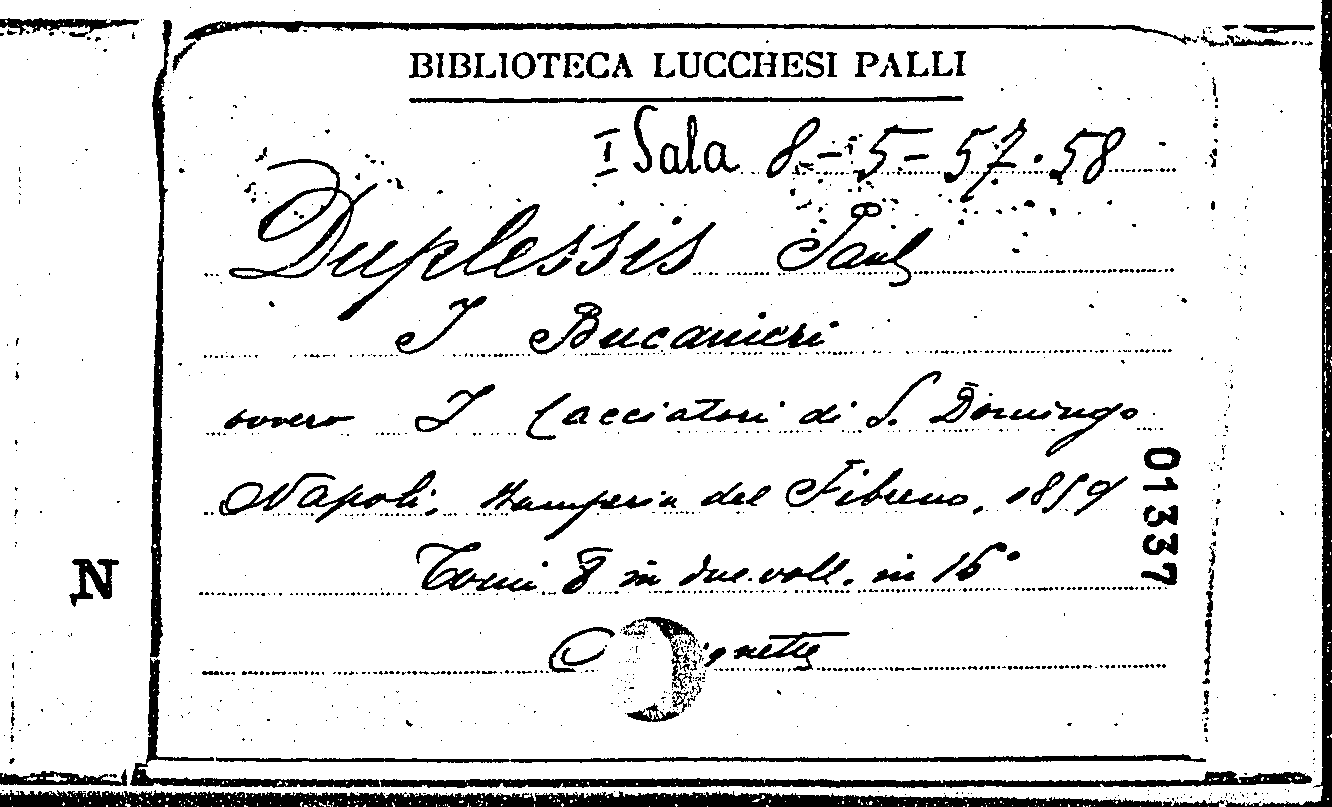 BIBLIOTECA LUCCHESI PALLI
I Sala 8-5-57.58
Duplessis Paul
I Bucanieri
ovvero I Cacciatori di S. Domingo
Napoli, Stamperia del Fibreno, 1859
Tomi 8 in due voll. in 16°
01337
N